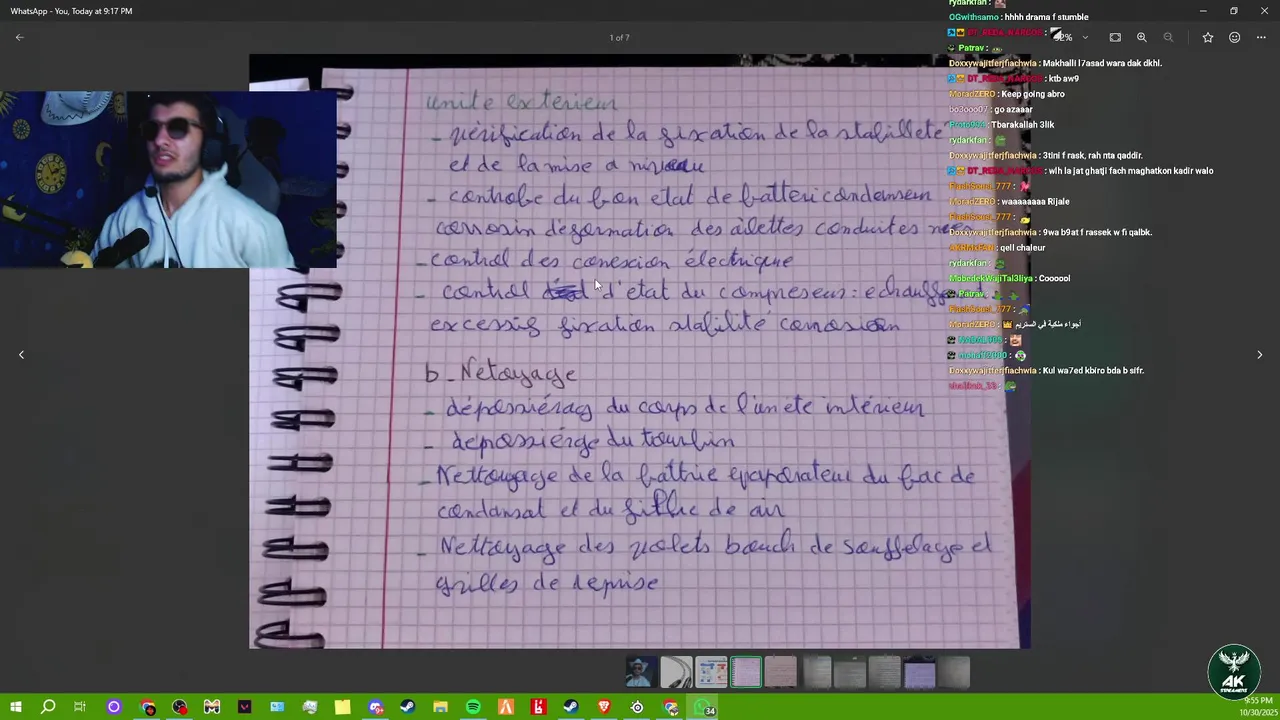 WhatsApp - You, Today at 9:17 PM
1 of 7
unité extérieur
- verification de la fixation de la stabillete
et de la mise a niveau
- controle du bon etat de batteri condenseur
corrosion deformation des ailettes conduites
- control des conexcion electrique
- control d'etat du compreseur : echauff
excessif fixation stabilité corrosion
b - Netoyage
- depossierag du corps de l'unete intérieur
- depossiérge du tourbin
- Nettoyage de la battrie evaporateur du bac de
condansat et du filtre de air
- Nettoyage des volets bouch de souffelage et
grilles de reprise
rydarkfan :
OGwithsamo : hhhh drama f stumble
Patrav :
Doxxywajitferjfiachwia : Makhalli l7asad wara dak dkhl.
: ktb aw9
MoradZERO : Keep going abro
bo3ooo07 : go azaaar
: Tbarakallah 3lik
rydarkfan :
Doxxywajitferjfiachwia : 3tini f rask, rah nta qaddir.
: wlh la jat ghatji fach maghatkon kadir walo
FlashSousi_777 :
MoradZERO : waaaaaaaa Rijale
FlashSousi_777 :
Doxxywajitferjfiachwia : 9wa b9at f rassek w fi qalbk.
: qell chaleur
rydarkfan :
MobedekWajiTal3liya : Coooool
Patrav :
FlashSousi_777 :
MoradZERO : أجواء ملكية في الستريم
Doxxywajitferjfiachwia : Kul wa7ed kbiro bda b sifr.
4K
STREAMERS
34
9:55 PM
10/30/2025